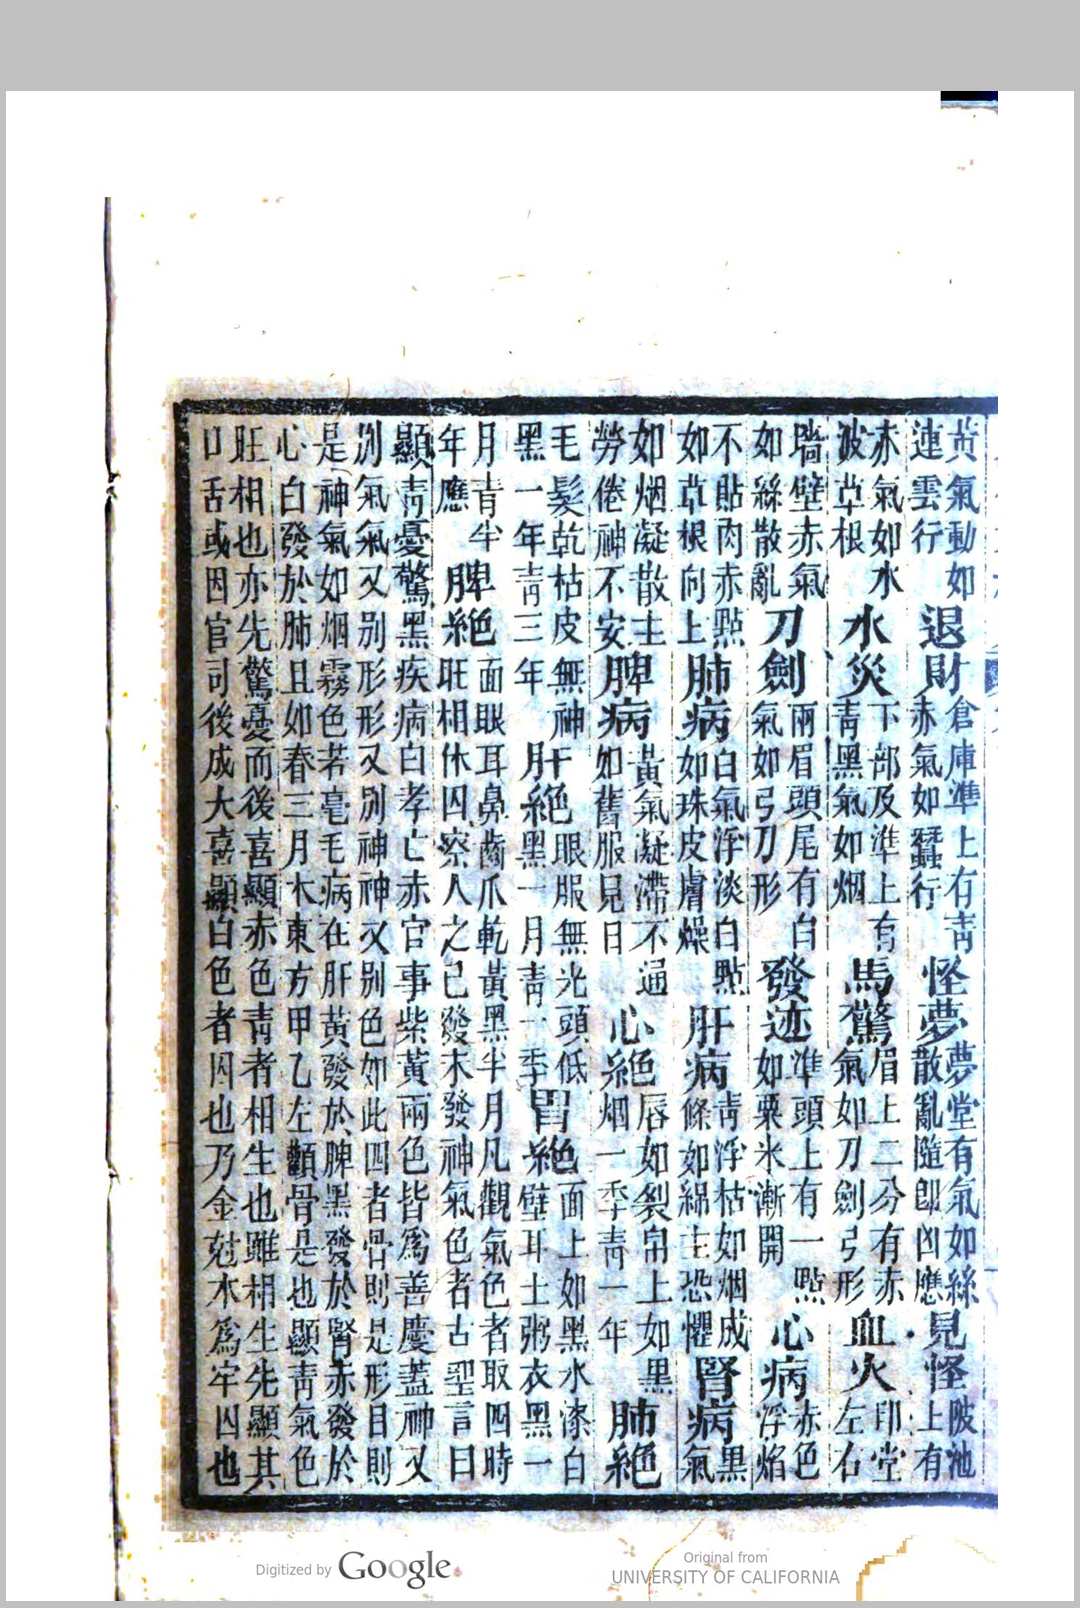 黃氣動如
連雲行
退財
倉庫準上有青
赤氣如蠶行
怪夢
夢堂有氣如絲
散亂隨卽凶應
見怪
陂池
上有
赤氣如水
波草根
水災
下部及準上有
青黑氣如烟
馬驚
眉上二分有赤
氣如刀劍弓形
血火
印堂
左右
墻壁赤氣
如絲散亂
刀劍
兩眉頭尾有白
氣如弓刀形
發迹
準頭上有一點
如粟米漸開
心病
赤色
浮焰
不貼肉赤點
如草根向上
肺病
白氣浮淡白點
如珠皮膚燥
肝病
青浮枯如烟成
條如綿主恐懼
腎病
黑
氣
如烟凝散主
勞倦神不安
脾病
黃氣凝滯不通
如舊服見日
心絕
唇如裂帛上如黑
烟一季青一年
肺絕
毛髮乾枯皮無神干
黑一年青三年
肝絕
眼服無光頭低
黑一月青一季
胃絕
面上如黑水漆白
壁耳土粥衣黑一
月青半
年應
脾絕
面眼耳鼻齒爪乾黃黑半月凡觀氣色者取四時
旺相休囚察人之已發未發神氣色者古聖言曰
顯青憂驚黑疾病白孝亡赤官事紫黃兩色皆爲善慶蓋神又
別氣氣又別形形又別神神又別色如此四者骨則是形日則
是神氣如烟霧色若毫毛病在肝黃發於脾黑發於腎赤發於
心白發於肺且如春三月木東方甲乙左顴骨是也顯青氣色
旺相也亦先驚憂而後喜顯赤色青者相生也雖相生先顯其
口舌或因官司後成大喜顯白色者囚也乃金尅木爲牢囚也
Digitized by Google
Original from
UNIVERSITY OF CALIFORNIA